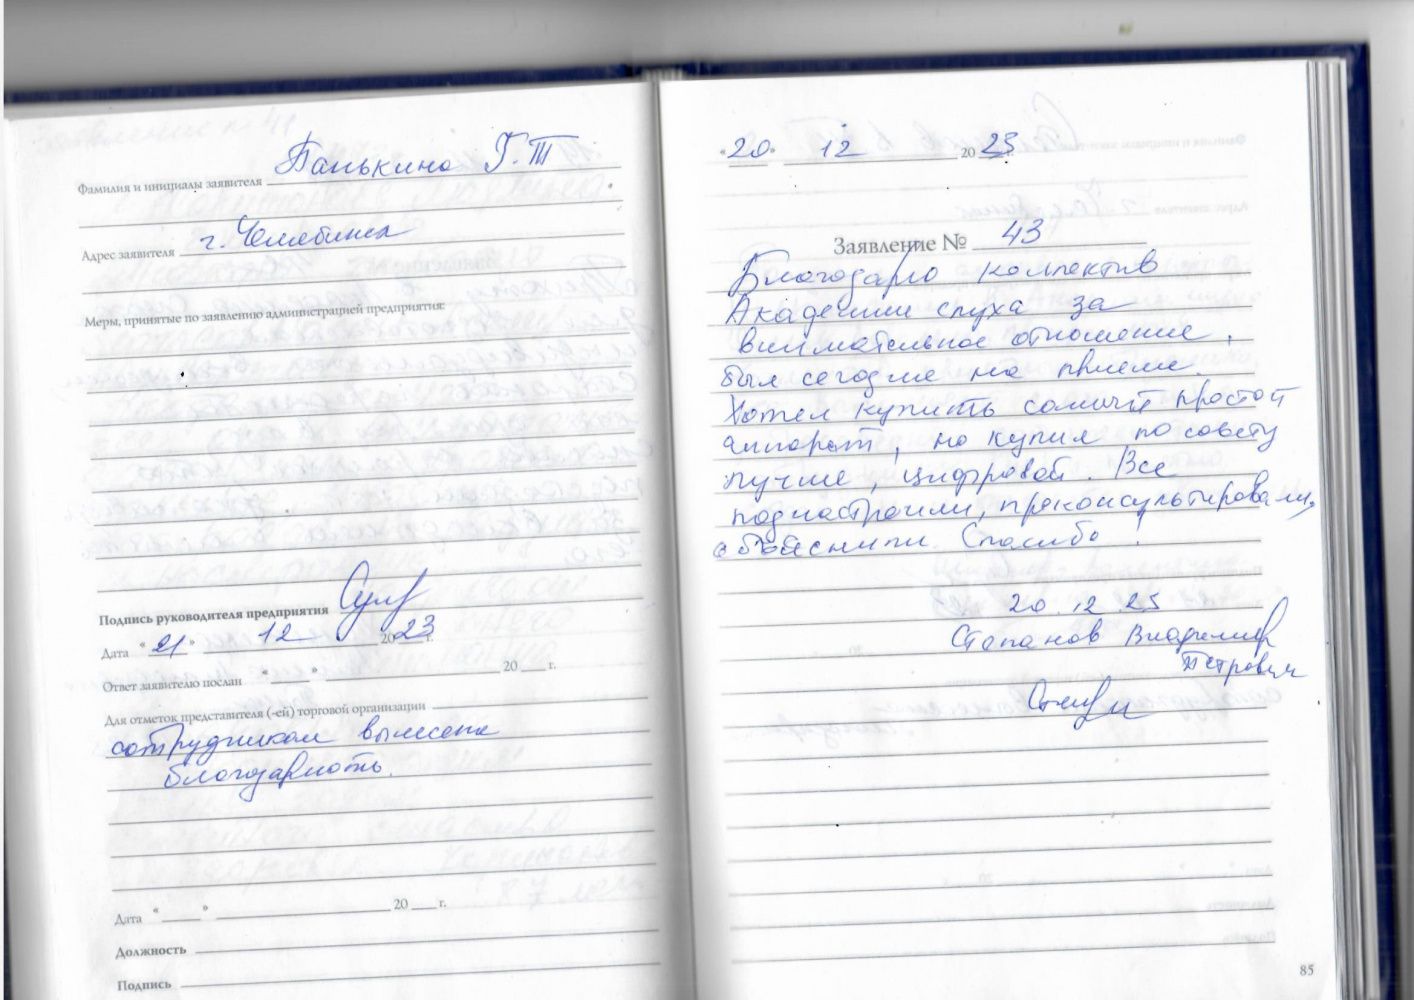 Фамилия и инициалы заявителя Панькина Г.Т
Адрес заявителя г. Челябинск
Меры, принятые по заявлению администрацией предприятия:
Подпись руководителя предприятия
Дата "21" 12 2023 г.
Ответ заявителю послан " " 20 г.
Для отметок представителя (-ей) торговой организации
сотрудникам вынесена
благодарность.
Дата " " 20 г.
Должность
Подпись
"20" 12 2023 г.
Заявление № 43
Благодарю коллектив
Академии слуха за
внимательное отношение,
был сегодня на приеме.
Хотел купить самый простой
аппарат, но купил по совету
лучше, цифровой. Все
поднастроили, проконсультировали,
объяснили. Спасибо!
20.12.23
Степанов Владимир
Петрович
85